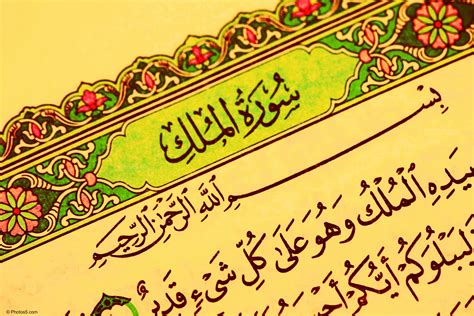 سُورَةُ المُلْكِ
بِسْمِ اللَّهِ الرَّحْمَٰنِ الرَّحِيمِ
بِيَدِهِ الْمُلْكُ وَهُوَ عَلَىٰ كُلِّ شَيْءٍ قَدِيرٌ
لِيَبْلُوَكُمْ أَيُّكُمْ
© Photos5.com